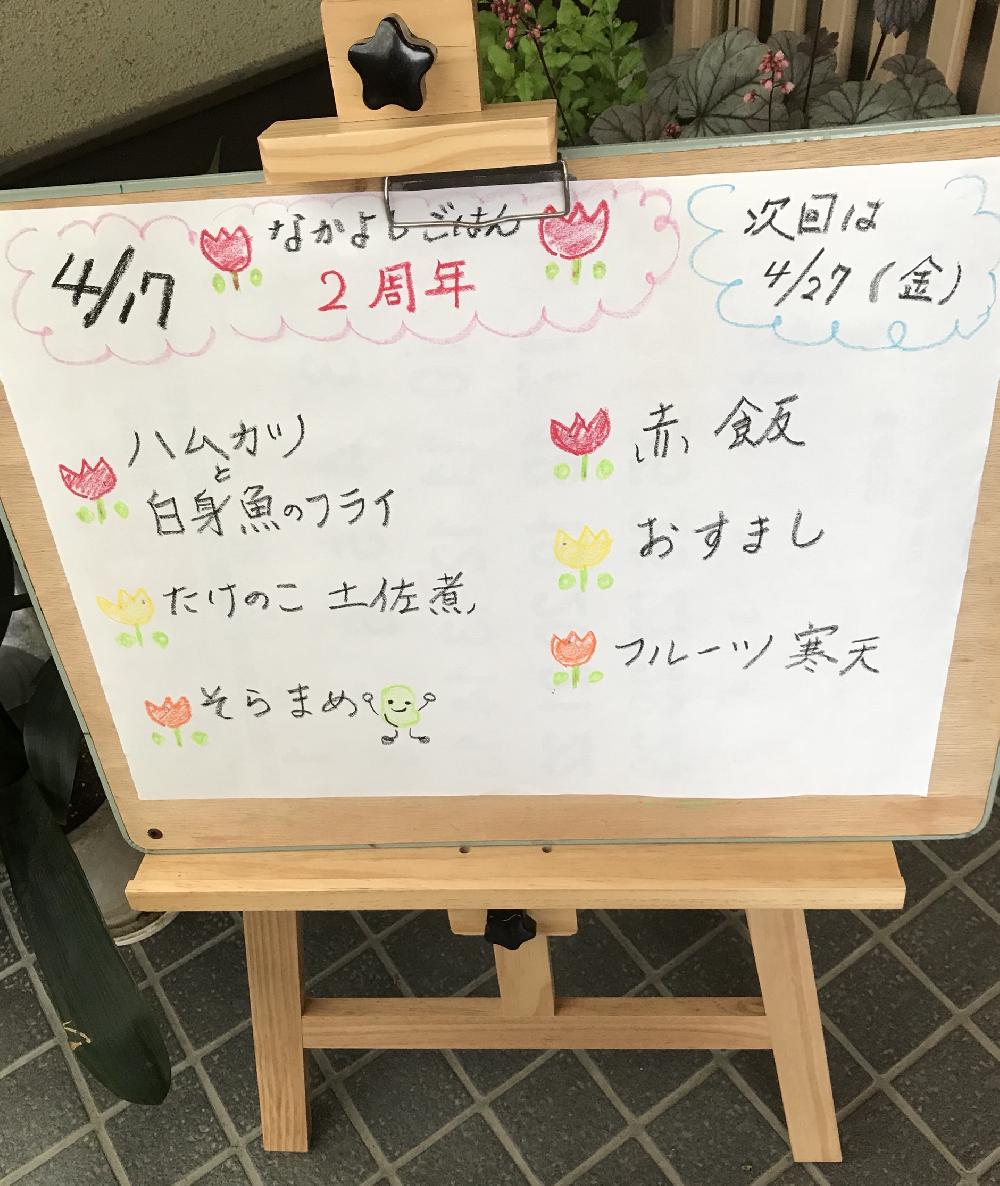 4/17
なかよしごはん
2周年
次回は
4/27(金)
ハムカツ
と
白身魚のフライ
たけのこ 土佐煮
そらまめ
赤飯
おすまし
フルーツ寒天